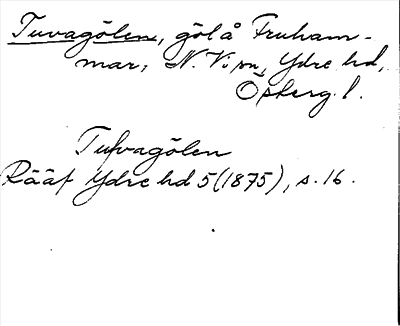 Tuvagölen, göl å Fruham-
mar, N. Vi sn, Ydre hd,
Östberg. l.
Tufvagölen
Rääf Ydre hd 5 (1875), s. 16.